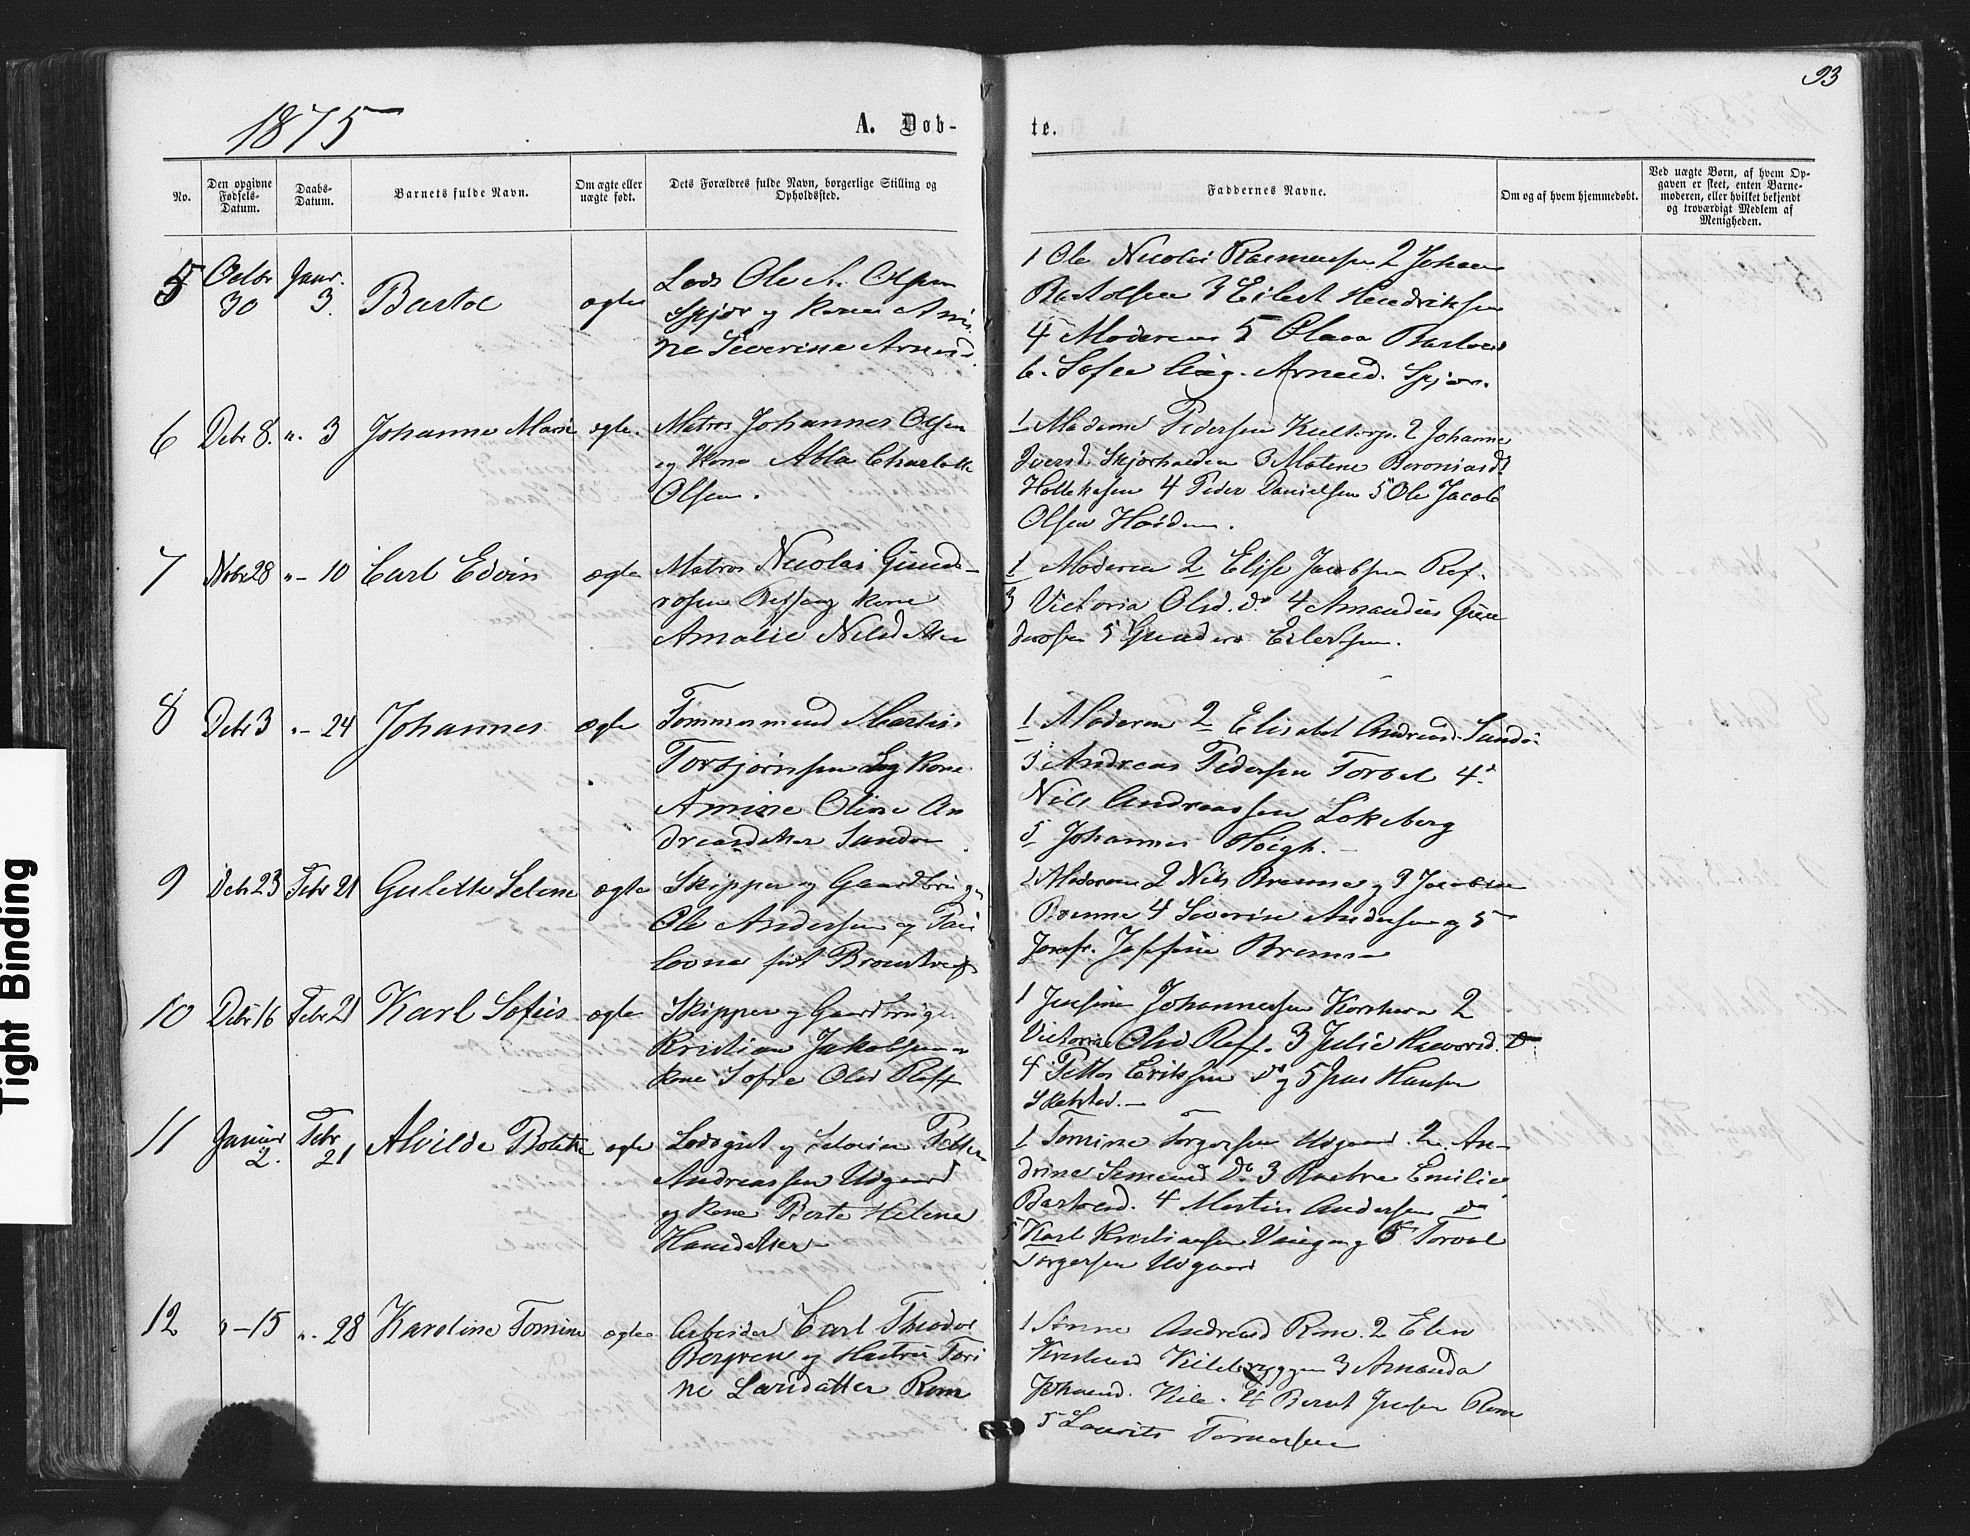 93
1875
A. Døb-
te.
No.
Den opgivne
Fødsels-
Datum.
Daabs-
Datum.
Barnets fulde Navn.
Om ægte eller
uægte født.
Dets Forældres fulde Navn, borgerlige Stilling og
Opholdssted.
Faddernes Navne.
Om og af hvem hjemmedøbt.
Ved uægte Børn, af hvem Op-
gaven er skeet, enten Barne-
moderen, eller hvilket bekjendt
og troværdigt Medlem af
Menigheden.
5
Octbr
30
Januar.
3.
Bartol
ægte
Lods Ole A. Olsen
Spjær og Kone Ami-
ne Severine Arnesd.
1 Ole Nicolai Rasmussen 2 Johan
Bartolsen 3 Eilert Hendriksen
4 Moderen 5 Olava Bartoes
6. Sofie Arnesd. Spjær.
6
Debr 8.
„. 3
Johanne Marie
ægte.
Matros Johannes Olsen
og Kone Abla Charlotte
Olsen.
1 Madame Pedersen 2 Johanne
Iversd. Skjærhalden 3 Matene
4 Peder Danielsen 5 Ole Jacob
Olsen
7
Nobr 28
„– 10
Carl Edvin
ægte
Matros Nicolai Gund-
rosen Kone
Amalie Nilsdatter
1 Moderen 2 Elise Jacobsen Ref.
3 Victoria Olsd. do 4 Amandus Gun
derosen 5 Gundero Eilertsen.
8
Debr 3
„– 24
Johannes
ægte
Tømmermand Martin
Torbjørnsen og Kone
Amine Oline An
dreasdatter Sandø
1 Moderen 2 Elisabet Andreasd. Sandø
3 Andreas Pedersen Torbel 4
Nils Andreassen Løkeberg
5 Johannes Høigh.
9
Debr 23
Febr 21
Gulette Selene
ægte
Skipper og Gaardbruger
Ole Andersen og Pau
lovna født
1 Moderen 2 Nils Brenne og 3
Brenne 4 Severine Andersen og 5
Jomfr. Josefine Brenne
10
Debr 16
Febr 21
Karl Sofus
ægte
Skipper og Gaardbruger
Kristian Jakobsen
Kone Sofie Olsd Reff
1 Johannessen Korshavn 2
Victoria Olsd Reff. 3 Julie do
4 Petter Eriksen do og 5 Hansen
11
Januar
2.
Febr
21
Alvilde Bolette
ægte
Lodsgut og Petter
Andreassen Udgaard
og Kone Berte Helene
Hansdatter
1 Tomine Torgersen Udgaard. 2. An-
drine do 3 Emilie
Bartoesd. 4 Martin Andersen do
5 Karl Kristiansen og 6 Torval
Torgersen Udgaard
12
„–15
„. 28
Karoline Tomine
ægte
Arbeider Carl Theodor
Bergren og Hustru Tori
ne Larsdatter Rom
1 Andreasd Rom. 2 Elen
3 Amanda
Johansd. Kile. 4 Bernt Jensen Rom
5 Laurits
Tight Binding